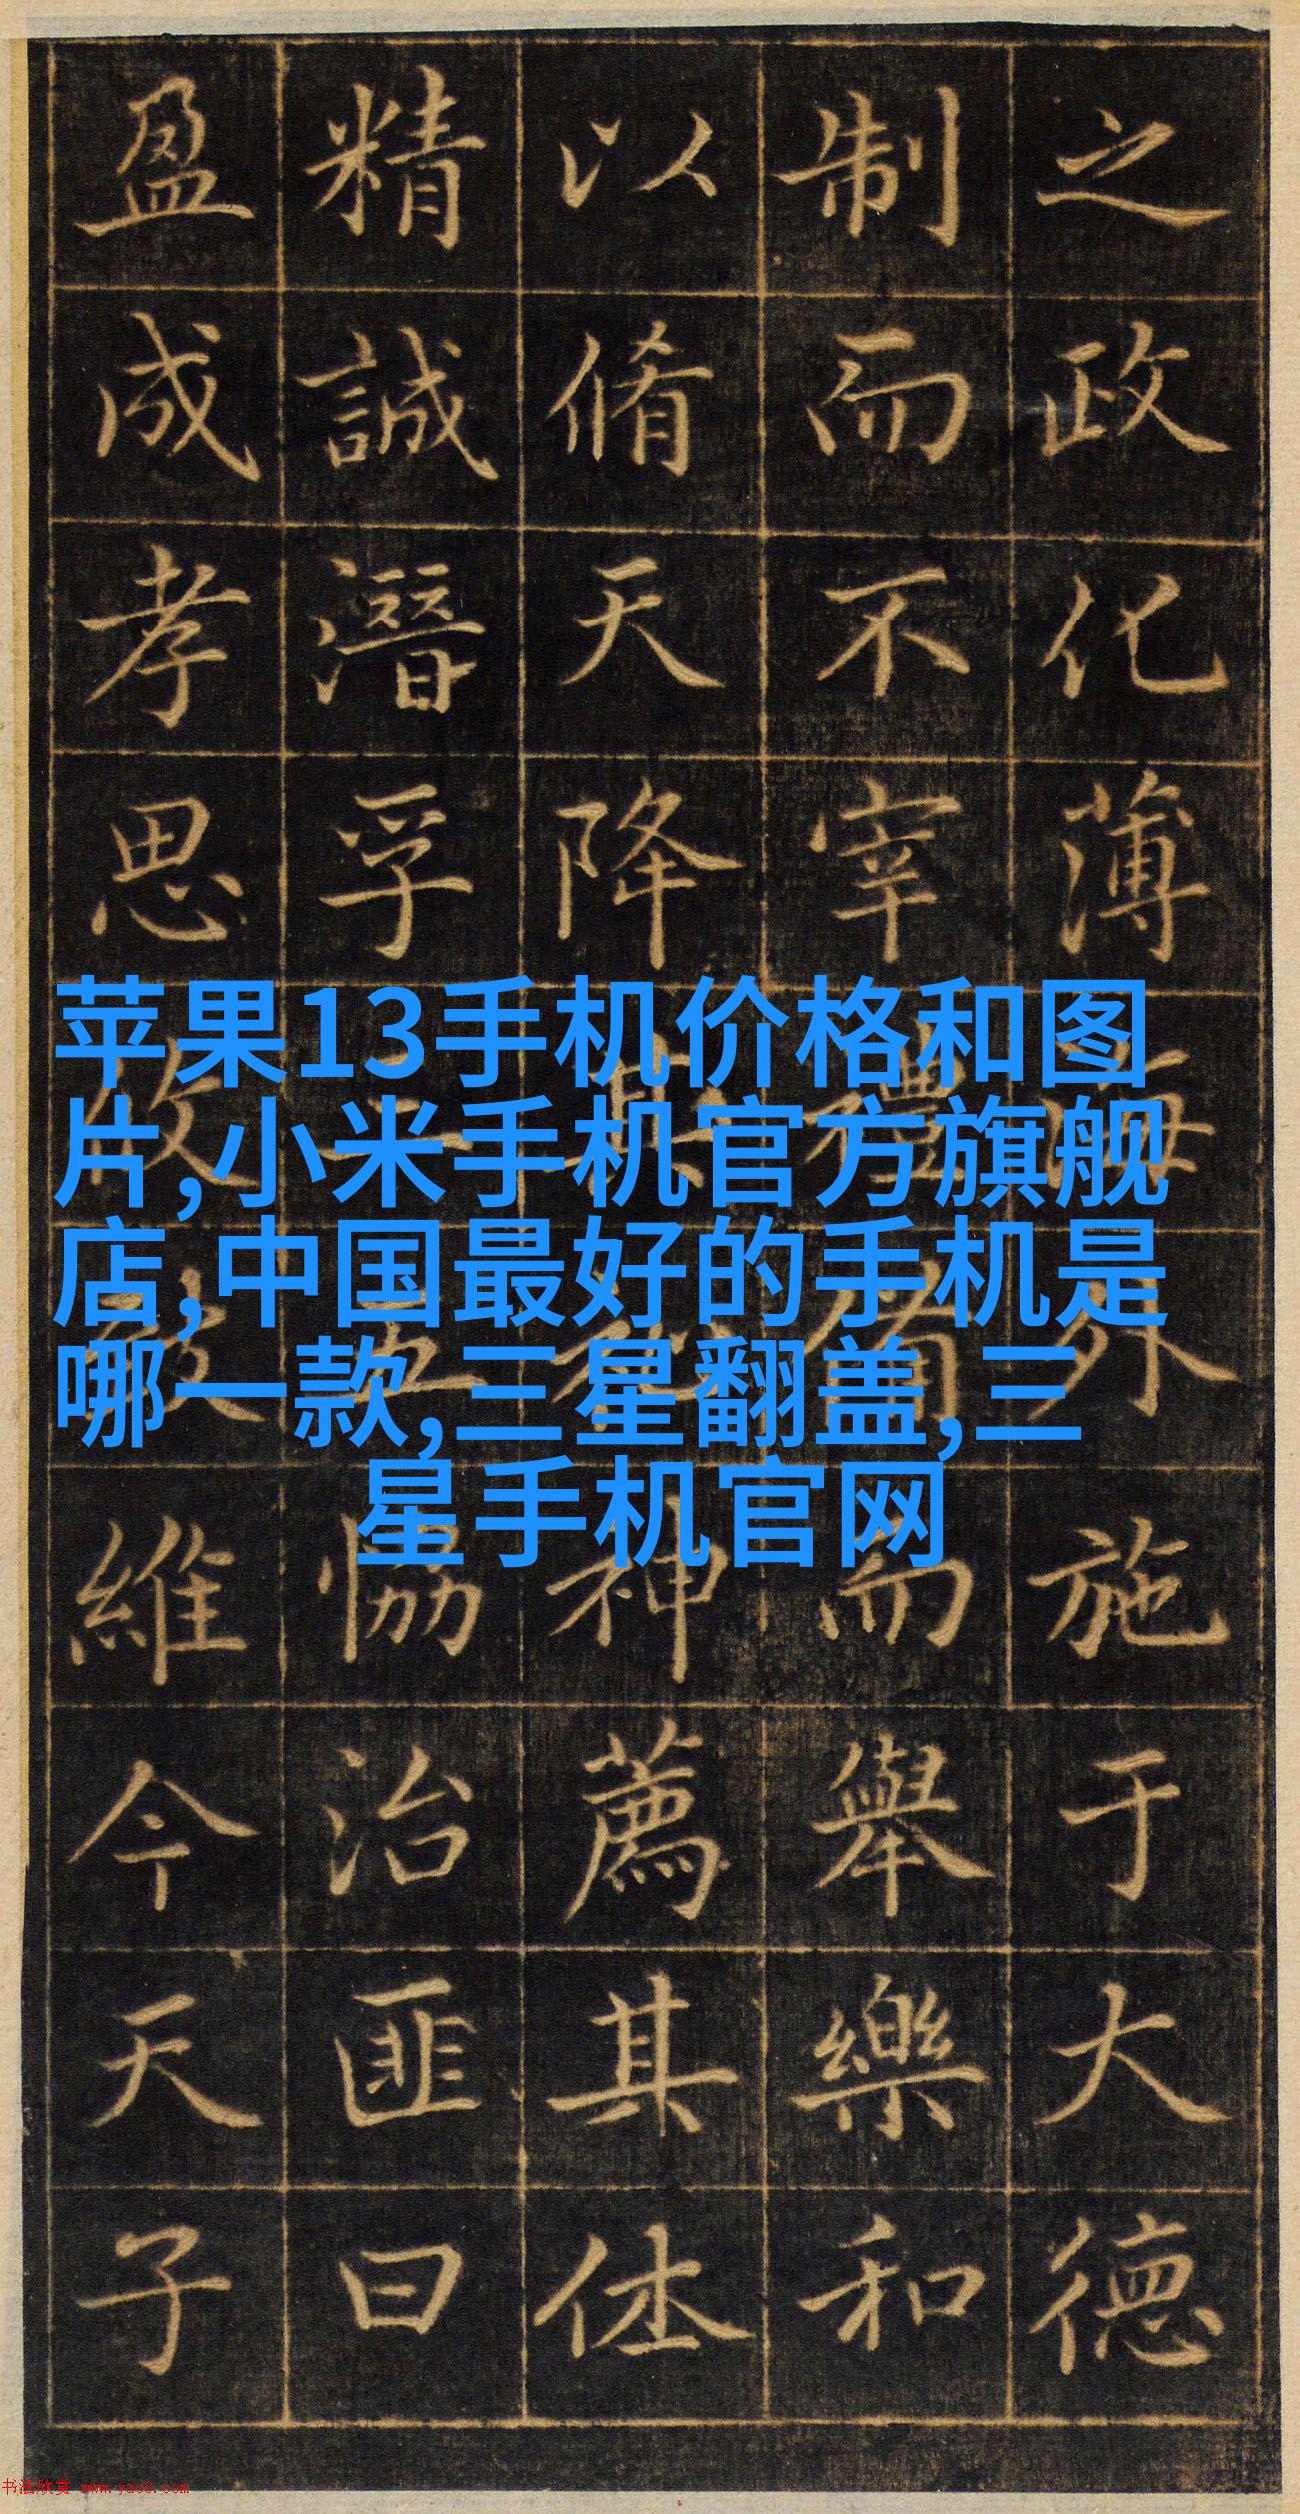 之政化薄海外施于大德
制而不宰禮備而舉樂和
以脩天降其和神薦其休
精誠潛孚五恊治匪曰
盈成孝思維今天子
苹果13手机价格和图
片,小米手机官方旗舰
店,中国最好的手机是
哪一款,三星翻盖,三
星手机官网
书法欣赏 www.yac8.com